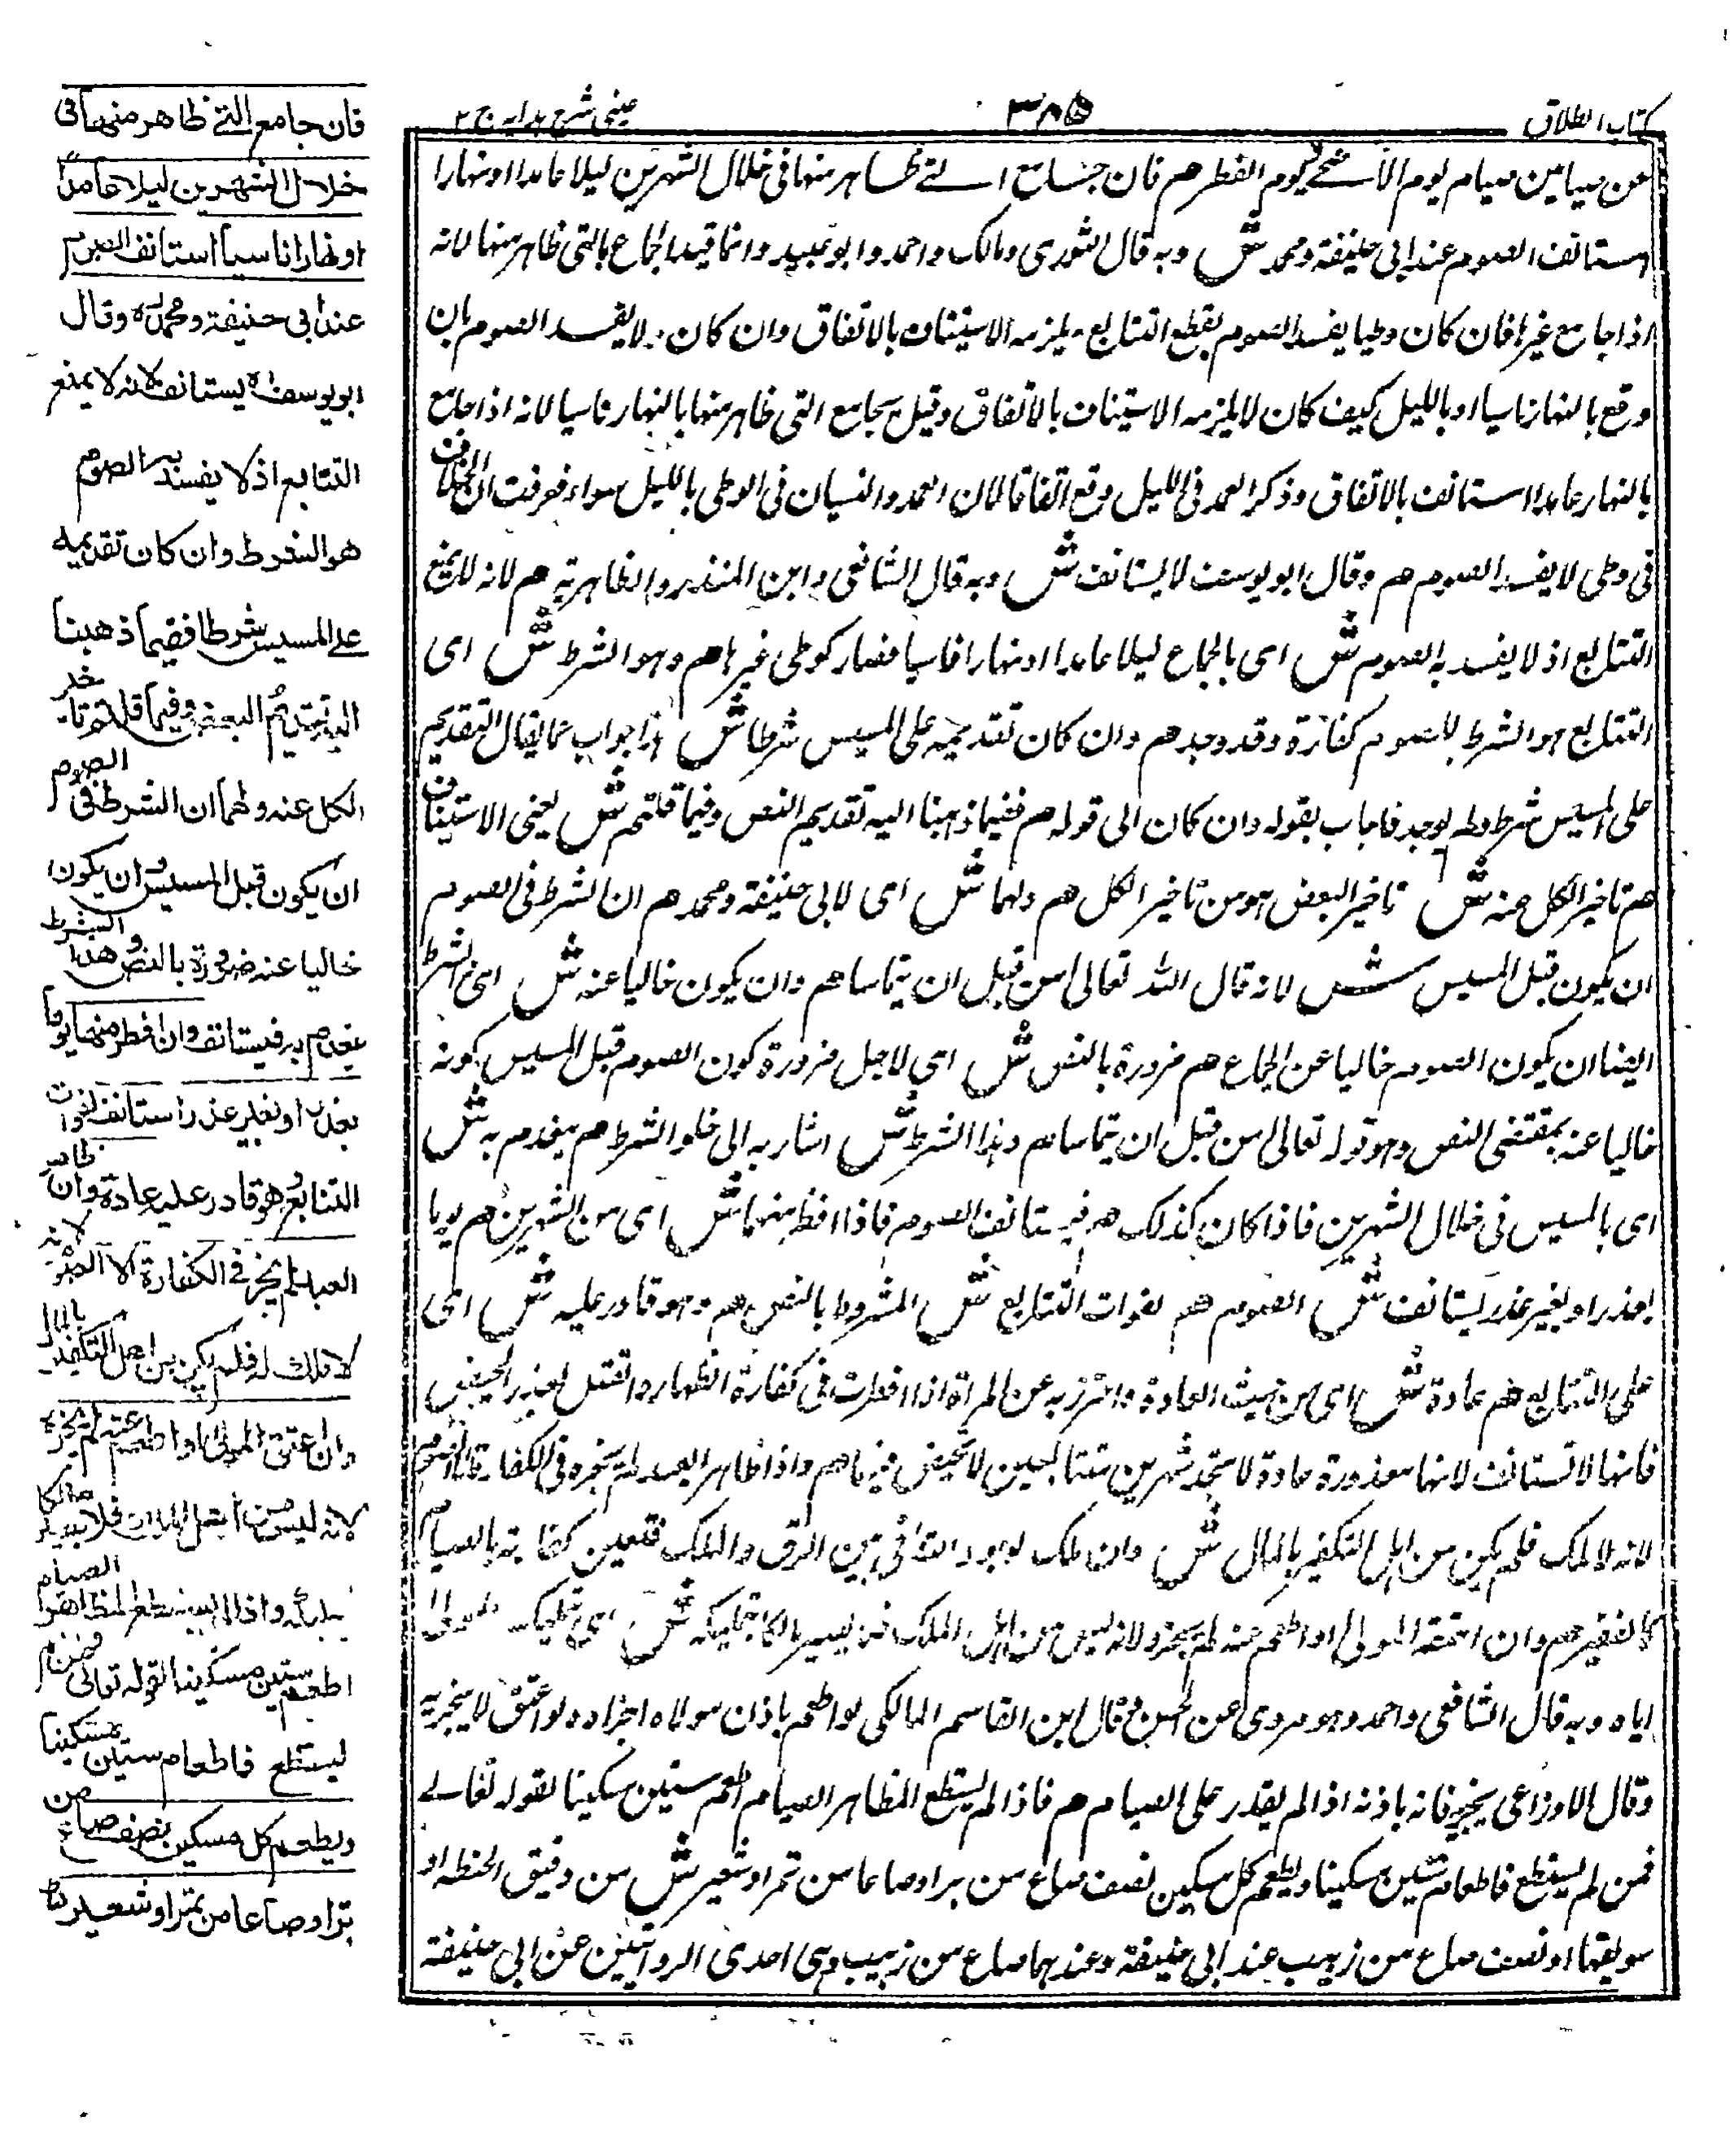 كتاب الطلاق
٣٨٥
عينى شرح هدايه ج ٢
عن صيامين صيام يوم الأضحى ويوم الفطر هم فان جامع التے ظاهر منها فى خلال الشهرين ليلا عامدا او نهارا
استانف الصوم عند ابى حنيفة ومحمد ش وبه قال الثورى ومالك واحمد وابو عبيد وانما قيد الجماع بالتى ظاهر منها لانه
اذا جامع غيرها فان كان وطيا يفسد الصوم يقطع التتابع يلزمه الاستيناف بالاتفاق وان كان لا يفسد الصوم بان
وقع بالنهار ناسيا او بالليل كيف كان لا يلزمه الاستيناف بالاتفاق وقيل يجامع التى ظاهر منها بالنهار ناسيا لانه اذا جامع
بالنهار عامدا استانف بالاتفاق وذكر العمد فى الليل وقع اتفاقا لان العمد والنسيان فى الوطى بالليل سواء فعرفت ان الخلاف
فى وطى لا يفسد الصوم هم وقال ابو يوسف لا يستانف ش وبه قال الشافعى وابن المنذر والظاهرية هم لانه لا يمنع
التتابع اذ لا يفسد به الصوم ش اى بالجماع ليلا عامدا او نهارا ناسيا فصار كوطى غيرها هم وهو الشرط ش اى
التتابع هو الشرط للصوم كفارة وقد وجد هم وان كان تقديمه على المسيس شرطا ش هذا جواب عما يقال التقديم
على المسيس شرط ولم يوجد فاجاب بقوله وان كان الى قوله هم ففيما ذهبنا اليه تقديم البعض وفيما قلتم ش يعنى الاستيناف
هم تاخير الكل عنه ش تاخير البعض اهون من تاخير الكل هم ولهما ش اى لابى حنيفة ومحمد هم ان الشرط فى الصوم
ان يكون قبل المسيس ش لانه قال الله تعالى من قبل ان يتماسا هم وان يكون خاليا عنه ش اى الشرط
ايضا ان يكون الصوم خاليا عن الجماع هم ضرورة بالنص ش اى لاجل ضرورة كون الصوم قبل المسيس كونه
خاليا عنه بمقتضى النص وهو قوله تعالى من قبل ان يتماسا هم وهذا الشرط ش اشار به الى خلو الشرط هم ينعدم به ش
اى بالمسيس فى خلال الشهرين فاذا كان كذلك هم فيستانف الصوم فاذا افطر منهما ش اى من الشهرين هم يوما
بعذر او بغير عذر يستانف ش الصوم هم لفوات التتابع ش المشروط بالنص هم وهو قادر عليه ش اى
على التتابع هم عادة ش اى من حيث العادة واحترز به عن المراة اذا افطرت فى كفارة الظهار والقتل لعذر الحيض
فانها لا تستانف لانها معذورة عادة لا تجد شهرين متتابعين لا تحيض فيهما هم واذا ظاهر العبد لم يجزه فى الكفارة الا الصوم
لانه لا ملك فلم يكن من اهل التكفير بالمال ش وان ملك لوجود التنافى بين الرق والملك فتعين كفارته بالصيام
كالفقير هم وان اعتقه المولى او اطعم عنه لم يجزه لانه ليس من اهل الملك فلا يصير مالكا بتمليكه ش اى بتمليك المولى
اياه وبه قال الشافعى واحمد وهو مروى عن الحسن قال ابن القاسم المالكى لو اطعم باذن مولاه اجزاه ولو اعتق لا يجزيه
وقال الاوزاعى يجزيه فانه باذنه اذا لم يقدر على الصيام هم فاذا لم يستطع المظاهر الصيام اطعم ستين مسكينا لقوله تعالے
فمن لم يستطع فاطعام ستين مسكينا ويطعم كل مسكين نصف صاع من بر او صاعا من تمر او شعير ش من دقيق الحنطه او
سويقها او نصف صاع من زبيب عند ابى حنيفة وعندهما صاع من زبيب وهى احدى الروايتين عن ابى حنيفة
فان جامع التے ظاهر منها فى
خلال الشهرين ليلا عامدا
او نهارا ناسيا استانف الصوم
عند ابى حنيفة ومحمد وقال
ابو يوسف لا يستانف لانه لا يمنع
التتابع اذ لا يفسد به الصوم
هو الشرط وان كان تقديمه
على المسيس شرطا ففيما ذهبنا
اليه تقديم البعض وفيما قلتم تاخير
الكل عنه ولهما ان الشرط فى الصوم
ان يكون قبل المسيس وان يكون
خاليا عنه ضرورة بالنص وهذا الشرط
ينعدم به فيستانف وان افطر منهما يوما
بعذر او بغير عذر استانف لفوات
التتابع وهو قادر عليه عادة وان ظاهر
العبد لم يجز فى الكفارة الا الصوم لانه
لا ملك له فلم يكن من اهل التكفير بالمال
وان اعتق المولى او اطعم عنه لم يجزه
لانه ليس من اهل الملك فلا يصير مالكا
بتمليكه واذا لم يستطع المظاهر الصيام
اطعم ستين مسكينا لقوله تعالى فمن لم
يستطع فاطعام ستين مسكينا
ويطعم كل مسكين نصف صاع من
بر او صاعا من تمر او شعير